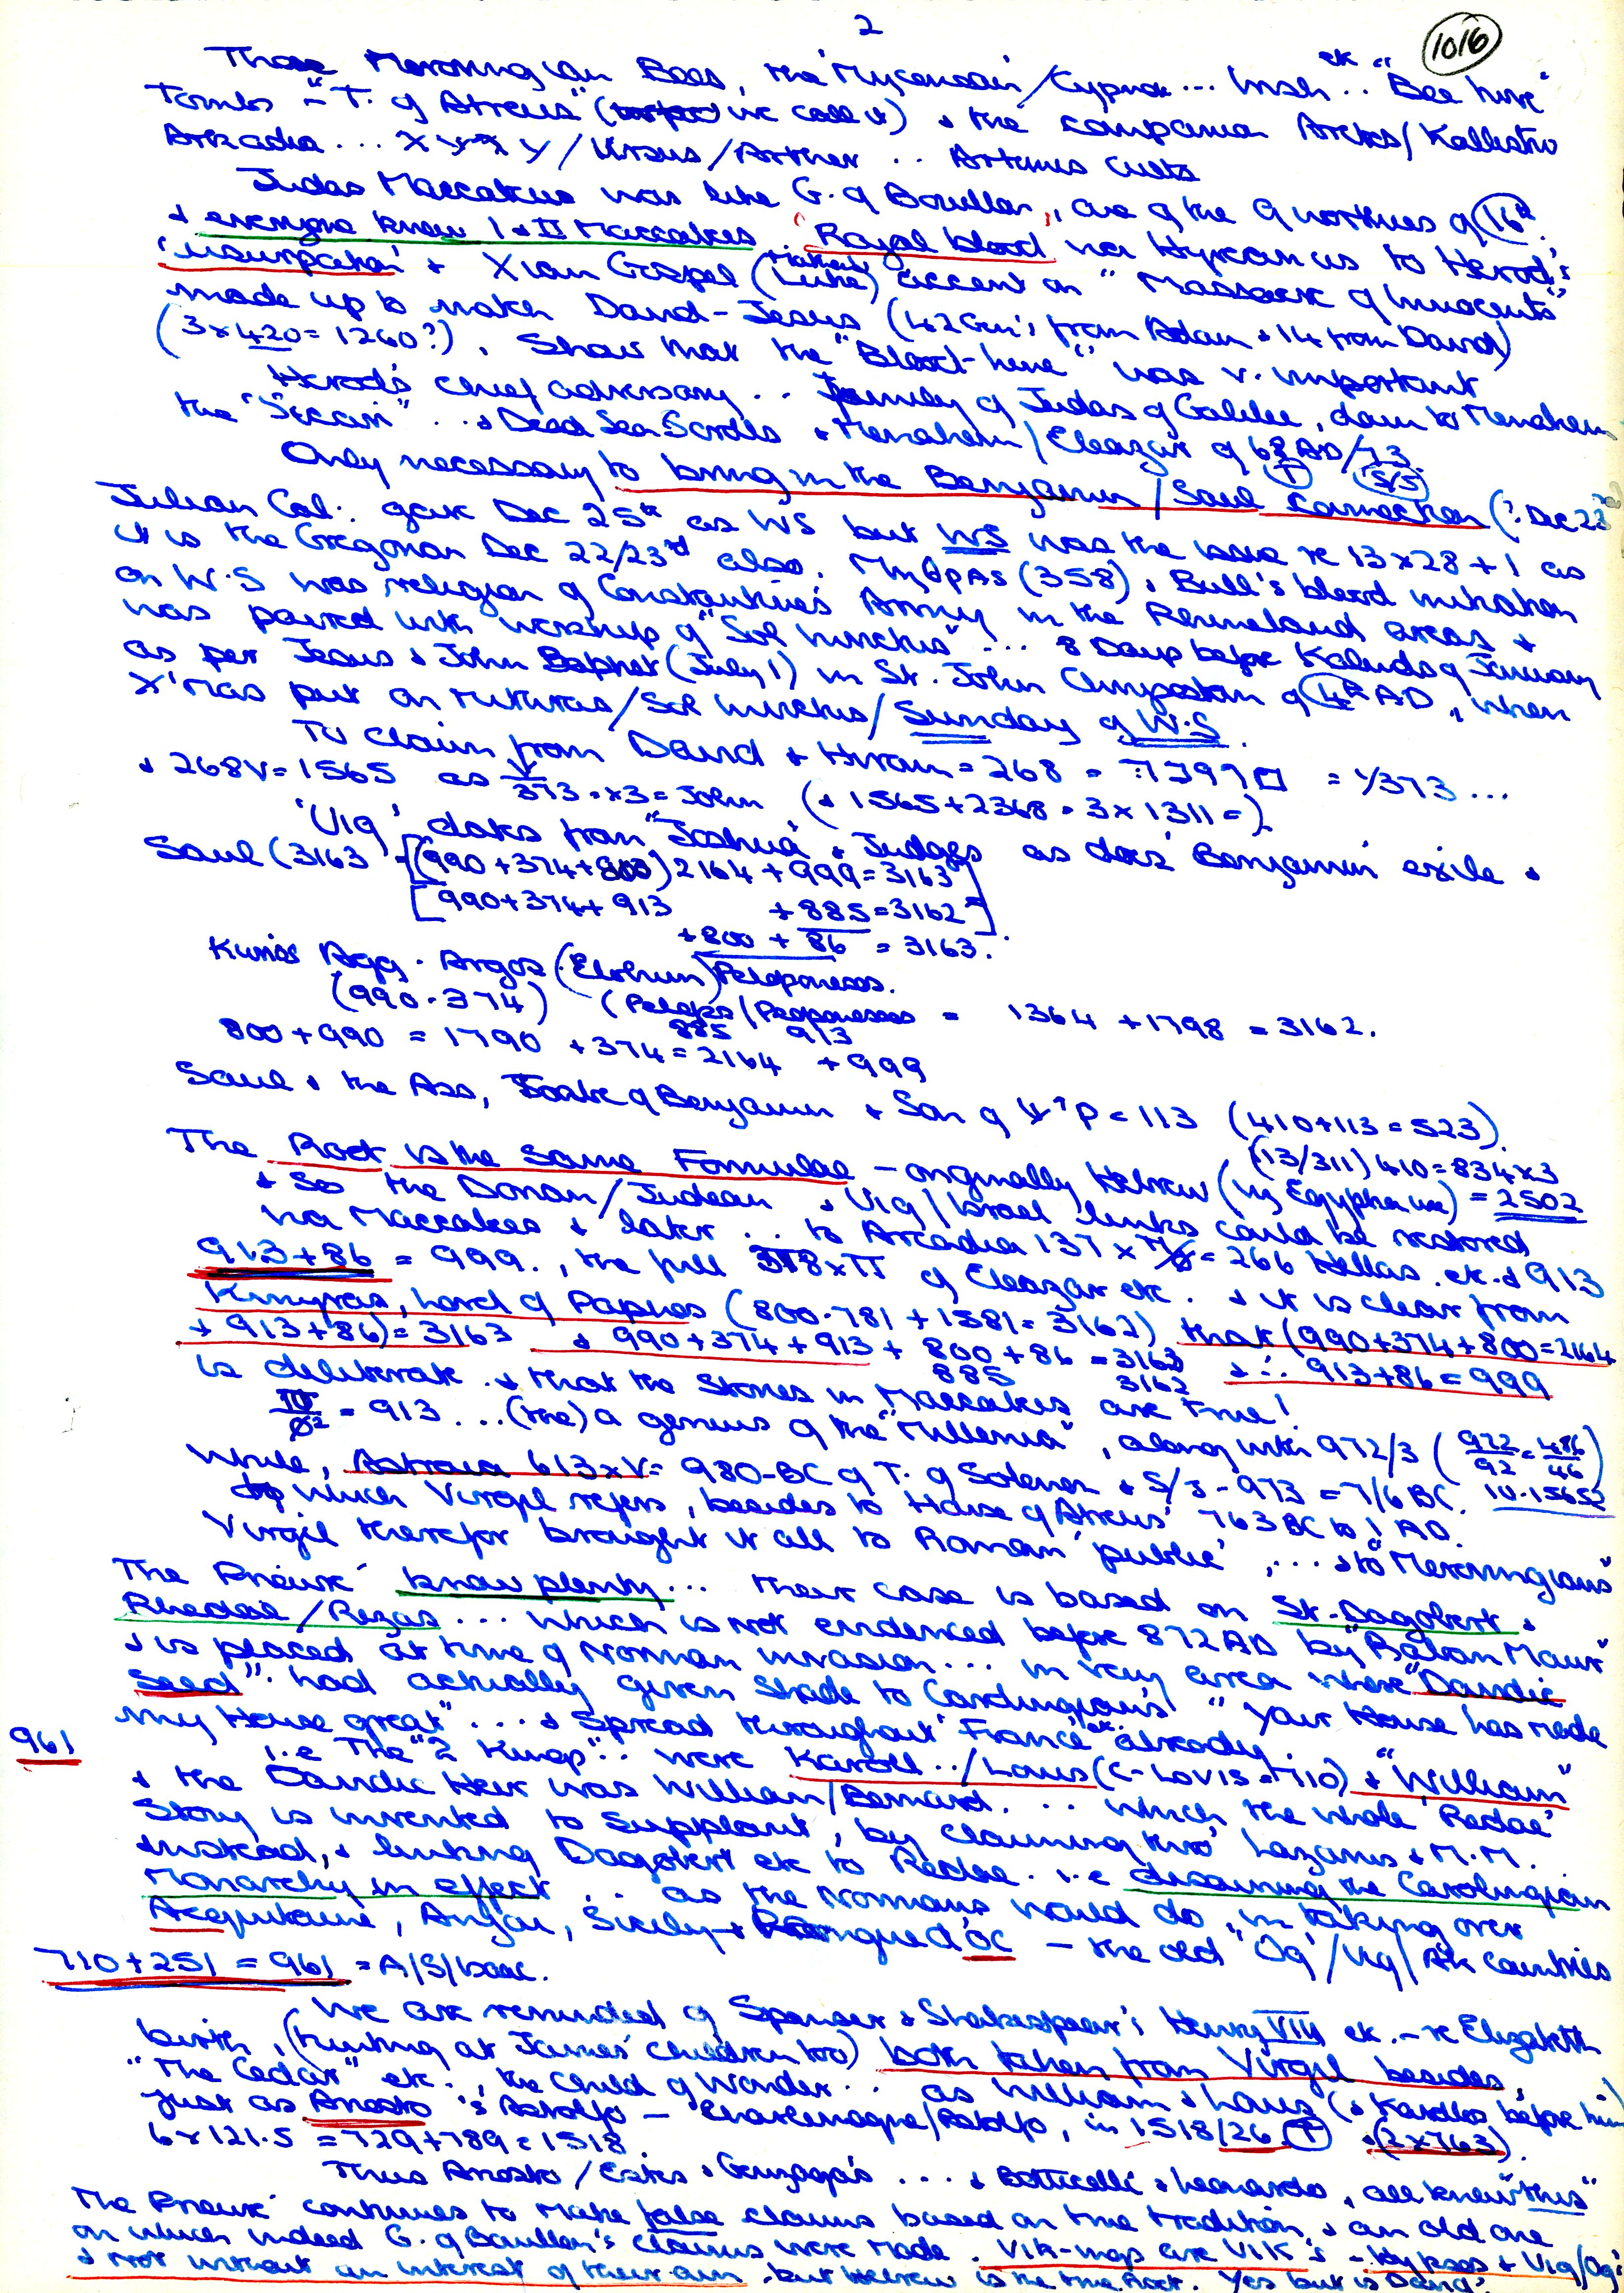 2
1016
Those Merovingian Bees, the 'Mycenaean'/Cyprus ... Irish .. etc "Bee hive"
Tombs - "T. of Atreus" ( we call it) & the companion Arctos/Kallisto
Arkadia ... /Ursus/Arthur .. Artemis Cults
Judas Maccabeus was like G. of Bouillon, one of the 9 worthies of 16th
& everyone knew I & II Maccabees .. 'Royal blood' via Hyrcanus to Herod's
'usurpation' & Xian Gospel (Luke) Matthew accent on "Massacre of Innocents"
made up to match David - Jesus (42 Gen's from Adam & 14 from David)
(3x420=1260?), Shows that the "Blood-line" was v. important
Herod's chief adversary .. family of Judas of Galilee, down to Menahem
the "Sicarii" .. & Dead Sea Scrolls & Menahem/Eleazar of 68 AD/73.
Only necessary to bring in the Benjamin/Saul Connection (? Dec 23
Julian Cal: gave Dec 25th as WS but WS was the issue re 13x28+1 as
it is the Gregorian Dec 22/23rd also. (358), Bull's blood initiation
on W.S was religion of Constantine's Army in the Rhineland areas &
was paired with worship of "Sol Invictus" ... 8 Days before Kalends of January
as per Jesus & John Baptist (July 1) in St. John Chrysostom of 4th AD, when
X'mas put on Mithras/Sol Invictus/Sunday of W.S.
To claim from David & Hiram = 268 = = 1/373 ...
& 268V = 1565 as 373 x3 = John (& 1565+2368 = 3x1311=)
'Uiq' dates from "Joshua & Judges as does Benjamin exile &
Saul (3163) = [(990+374+800) 2164+999=3163"]
[990+374+913 +885=3162"]
+800 + 86 = 3163.
Argos (Elohim) Peloponesos.
(990.374) (Pelops/Peloponesos = 1364 + 1798 = 3162.
885 913
800+990 = 1790 +374=2164 +999
Saul & the Ass, of Benjamin & Son of = 113 (410+113=523)
The Root is the Same Formulae - originally Hebrew (13/311) 410=834x3
& So the Dorian/Judean & Uiq/Israel links could be restored (Egyptian) = 2502
via Maccabees & later ... to Arcadia 137 x = 266 Hellas etc. & 913
913+86 = 999., the full 318xTT of Eleazar etc. & it is clear from
Kinyras, Lord of Paphos (800.781+1581=3162) that (990+374+800=2164
+ 913+86) = 3163 & 990+374+913+800+86=3163 & ∴ 913+86=999
885 3162
is deliberate. & that the Stories in Maccabees are true!
= 913 ... (the) a genius of the "Millenia", along with 972/3 (972/92=486/46)
While, Astraea 613xV= 980-BC of T. of Solomon & S/S-973 = 7/6 BC. 10.1565
to which Virgil refers, besides to 'House of Atreus' 763 BC to 1 AD.
Virgil therefor brought it all to Roman 'public', ... & to "Merovingians"
The Prieure know plenty ... their case is based on St. Dagobert &
Rhedae/Rezas ... which is not evidenced before 872 AD by Maur"
& is placed at time of Norman invasion ... in very area where "Davidic
Seed" had actually given Shade to Carolingians "your House has made
my House great" ... & Spread throughout France etc. already.
961
i.e The "2 Kings" .. were Karoli ../Louis (C-Lovis=710) & "William"
& the Davidic Heir was William/Bernard. ... which, the whole 'Redae'
Story is invented to Supplant, by claiming thro' Lazarus & M.M.
instead, & linking Dagobert etc to Redae. i.e disowning the Carolingian
Monarchy in effect .. as the Normans would do, in taking over
Acquitaine, Anjou, Sicily & d'OC - the old "Oq'/Uq/ countries
710+251 = 961 = A/S/Isaac.
We are reminded of Spenser & Shakespear's Henry VIII etc. - re Elizabeth
birth, (hinting at James' children too) both taken from Virgil besides,
"The Cedar" etc., the Child of Wonder .. as William & Louis (& Karolus before him.)
just as Ariosto's Astolfo - 'Charlemagne/Astolfo, in 1518/26 T & (2x763)
6x121.5 = 729+789 = 1518.
Thus Ariosto/Estes & Gonzaga's ... & Botticelli & Leonardo, all knew "this"
The Prieure continues to make false claims based on true tradition, & an old one
on which indeed G. of Bouillon's claims were made. are VIK's - Hyksos & Uiq/Oq
& not without an interest of their own, but Hebrew is the true Root. Yes but is